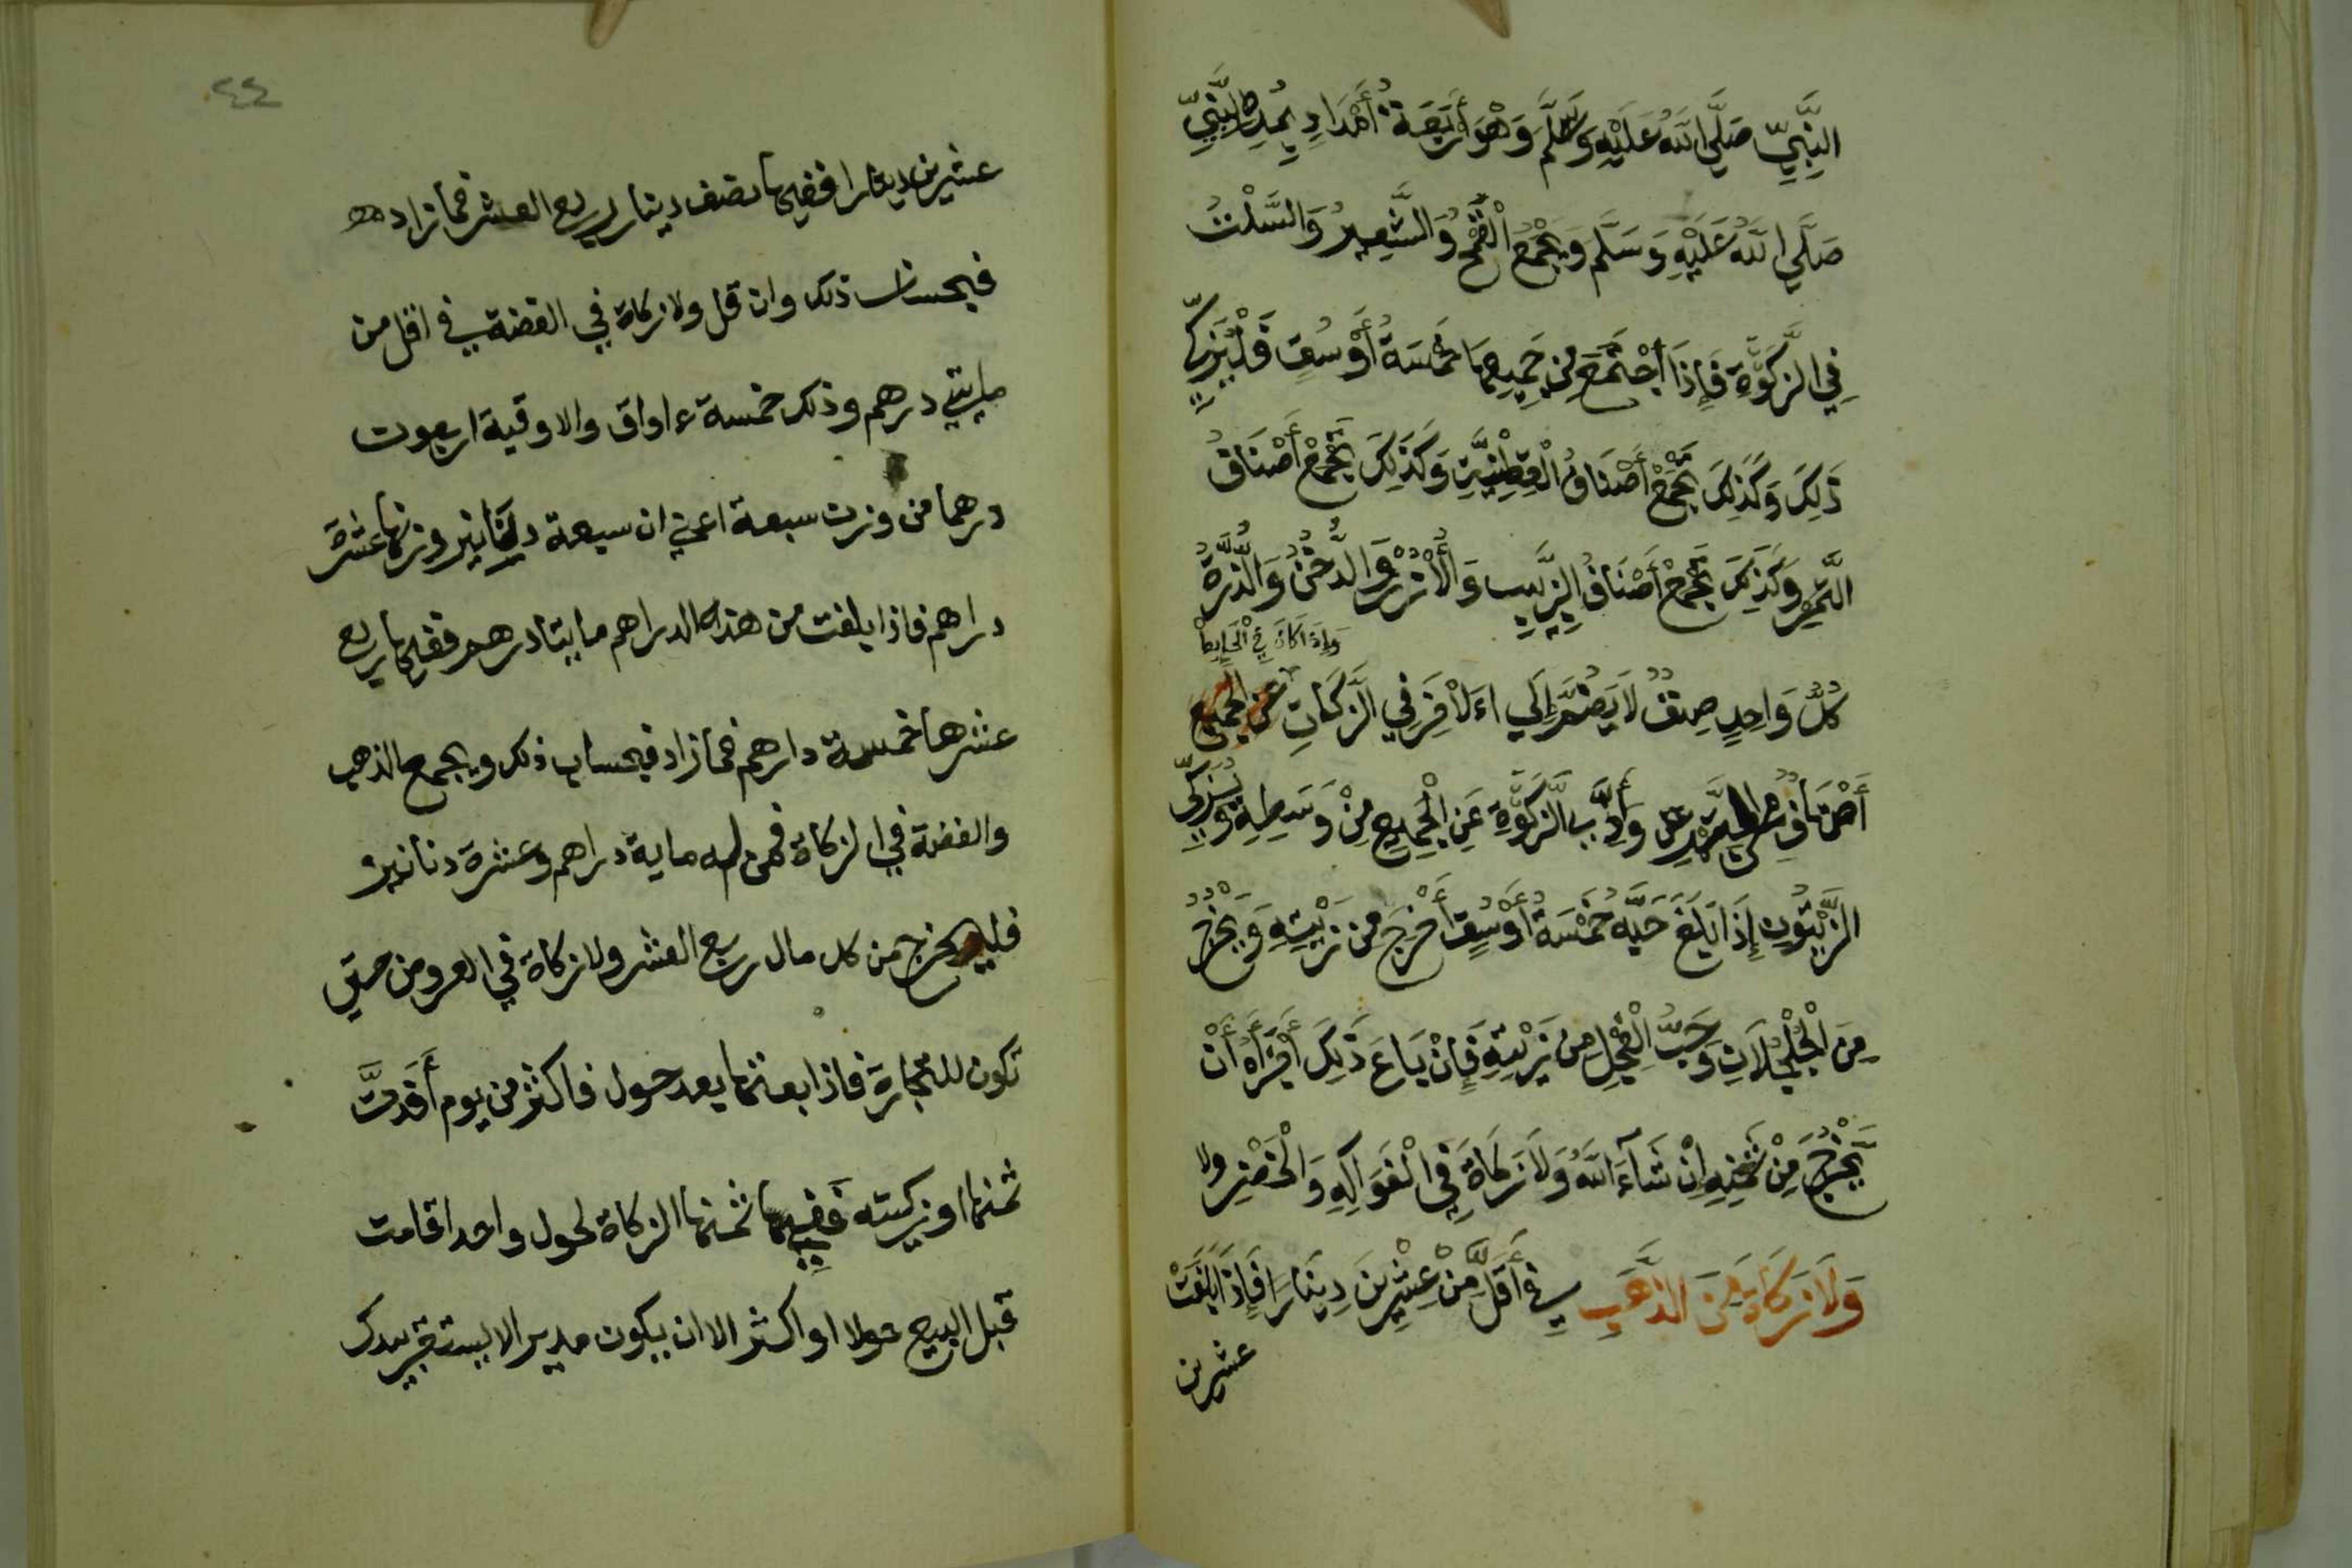 النَّبِيِّ صَلَّى اللَّهُ عَلَيْهِ وَسَلَّمَ وَهْوَ أَرْبَعَةُ أَمْدَادٍ بِمُدِّ النَّبِيِّ
صَلَّي اللَّهُ عَلَيْهِ وَسَلَّمَ وَيُجْمَعُ الْقَمْحُ وَالشَّعِيرُ وَالسَّلْتُ
فِي الزَّكَوٰةِ فَإِذَا أجْتَمَعَ مِن جَمِيعِهَا خَمْسَةُ أَوْسُقٍ فَلْيُزَكِّ
ذَلِكَ وَكَذَلِكَ تُجْمَعُ أَصْنَافُ الْقِطْنِيَّةِ وَكَذَلِكَ تُجْمَعُ أَصْنَافُ
التَّمْرِ وَكَذَلِكَ تُجْمَعُ أَصْنَافُ الزَّبِيبِ وَالْأُرْزُ وَالدُّخْنُ وَالذُّرَةُ
وَإِذَا كَانَ فِي الْحَايِطِ
كُلُّ وَاحِدٍ صِنْفٌ لَا يَضُمُّ إِلَي اءَلَاخَرِ فِي الزَّكَاتِ
أَصْنَافٌ مِنَ التَّمْرِ أَدَّى الزَّكَوٰةَ عَنِ الْجَمِيعِ مِنْ وَسَطِهِ وَيُزَكَّي
الزَّيْتُونِ إِذَا بَلَغَ حَبُّهُ خَمْسَةُ أَوْسُقٍ أَخْرَجَ مِن زَيْتِهِ وَيُخْرِجُ
مِنَ الْجُلْجُلَانِ وَحَبِّ الْفِجْلِ مِن زَيْتِهِ فَإِنْ بَاعَ ذَلِكَ أَجْزَأَهُ أَنْ
يُخْرِجَ مِنْ ثَمَنِهِ إِنْ شَآءَ اللَّهُ وَلَا زَكَاةَ فِي الْفَوَاكِهِ وَالْخُضَرِ ولا
وَلَا زَكَاةَ مِنَ الذَّهَبِ فِي أَقَلَّ مِنْ عِشْرِينَ دِينَارًا فَإِذَا بَلَغَتْ
عشرين
٤٤
عشرين دينارا ففيها نصف دينار ربع العشر فما زاد
فبحساب ذلك وان قل ولا زكاة في الفضة في اقل من
مايتي درهم وذلك خمسة ءاواق والاوقية اربعون
درهما من وزن سبعة اعني ان سبعة دنانير وزنها عشرة
دراهم فاذا بلغت من هذه الدراهم مايتا درهم ففيها ربع
عشرها خمسة دارهم فما زاد فبحساب ذلك ويجمع الذهب
والفضة في الزكاة فمن له ماية دراهم وعشرة دنانير
فليخرج من كل مال ربع العشر ولا زكاة في العروض حتي
تكون للتجارة فاذا بعتها بعد حول فاكثر من يوم أَخَدتَّ
ثمنها او زكيته فَفِي ثمنها الزكاة لحول واحد اقامت
قبل البيع حولا او اكثر الا ان يكون مديرا لا يستقر بيدك